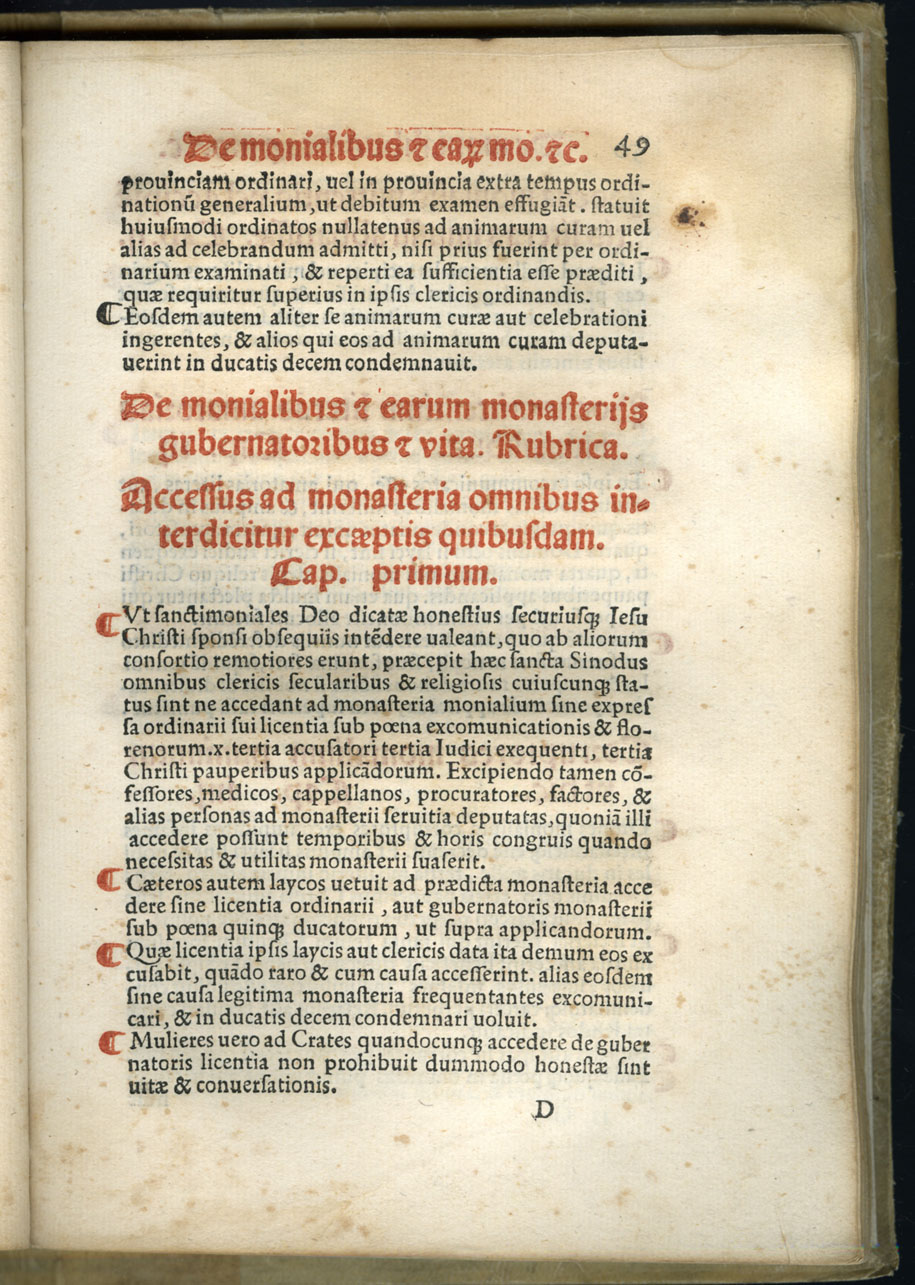 De monialibus ⁊ eaꝝ mo. ⁊c. 49
prouinciam ordinari, uel in prouincia extra tempus ordi-
nationū generalium, ut debitum examen effugiāt. ſtatuit
huiuſmodi ordinatos nullatenus ad animarum curam uel
alias ad celebrandum admitti, niſi prius fuerint per ordi-
narium examinati, & reperti ea ſufficientia eſſe præditi,
quæ requiritur ſuperius in ipſis clericis ordinandis.
¶ Eoſdem autem aliter ſe animarum curæ aut celebrationi
ingerentes, & alios qui eos ad animarum curam deputa-
uerint in ducatis decem condemnauit.
De monialibus ⁊ earum monaſterijs
gubernatoꝛibus ⁊ vita. Rubrica.
Acceſſus ad monaſteria omnibus in-
terdicitur excæptis quibuſdam.
Cap. primum.
¶ Vt ſanctimoniales Deo dicatæ honeſtius ſecuriuſq; Ieſu
Chriſti ſponſi obſequiis intēdere ualeant, quo ab aliorum
conſortio remotiores erunt, præcepit hæc ſancta Sinodus
omnibus clericis ſecularibus & religioſis cuiuſcunq; ſta-
tus ſint ne accedant ad monaſteria monialium ſine expreſ
ſa ordinarii ſui licentia ſub pœna excomunicationis & flo-
renorum .x. tertia accuſatori tertia Iudici exequenti, tertia
Chriſti pauperibus applicādorum. Excipiendo tamen cō-
feſſores, medicos, cappellanos, procuratores, factores, &
alias perſonas ad monaſterii ſeruitia deputatas, quoniā illi
accedere poſſunt temporibus & horis congruis quando
neceſſitas & utilitas monaſterii ſuaſerit.
¶ Cæteros autem laycos uetuit ad prædicta monaſteria acce
dere ſine licentia ordinarii, aut gubernatoris monaſterii
ſub pœna quinq; ducatorum, ut ſupra applicandorum.
¶ Quæ licentia ipſis laycis aut clericis data ita demum eos ex
cuſabit, quādo raro & cum cauſa acceſſerint. alias eoſdem
ſine cauſa legitima monaſteria frequentantes excomuni-
cari, & in ducatis decem condemnari uoluit.
¶ Mulieres uero ad Crates quandocunq; accedere de guber
natoris licentia non prohibuit dummodo honeſtæ ſint
uitæ & conuerſationis.
D